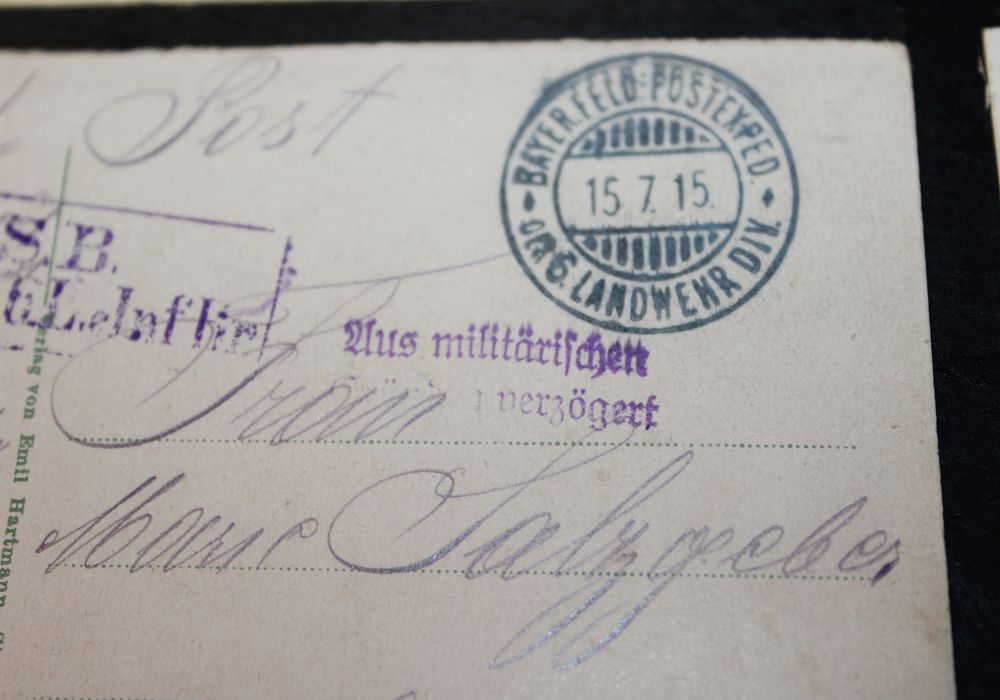 Post
BAYER. FELD-POSTEXPED.
15.7.15.
DER 6. LANDWEHR DIV.
S.B.
L.eInf hr
Aus militärischen
verzögert
Frau
Marie Salzgeber
Verlag von Emil Hartmann